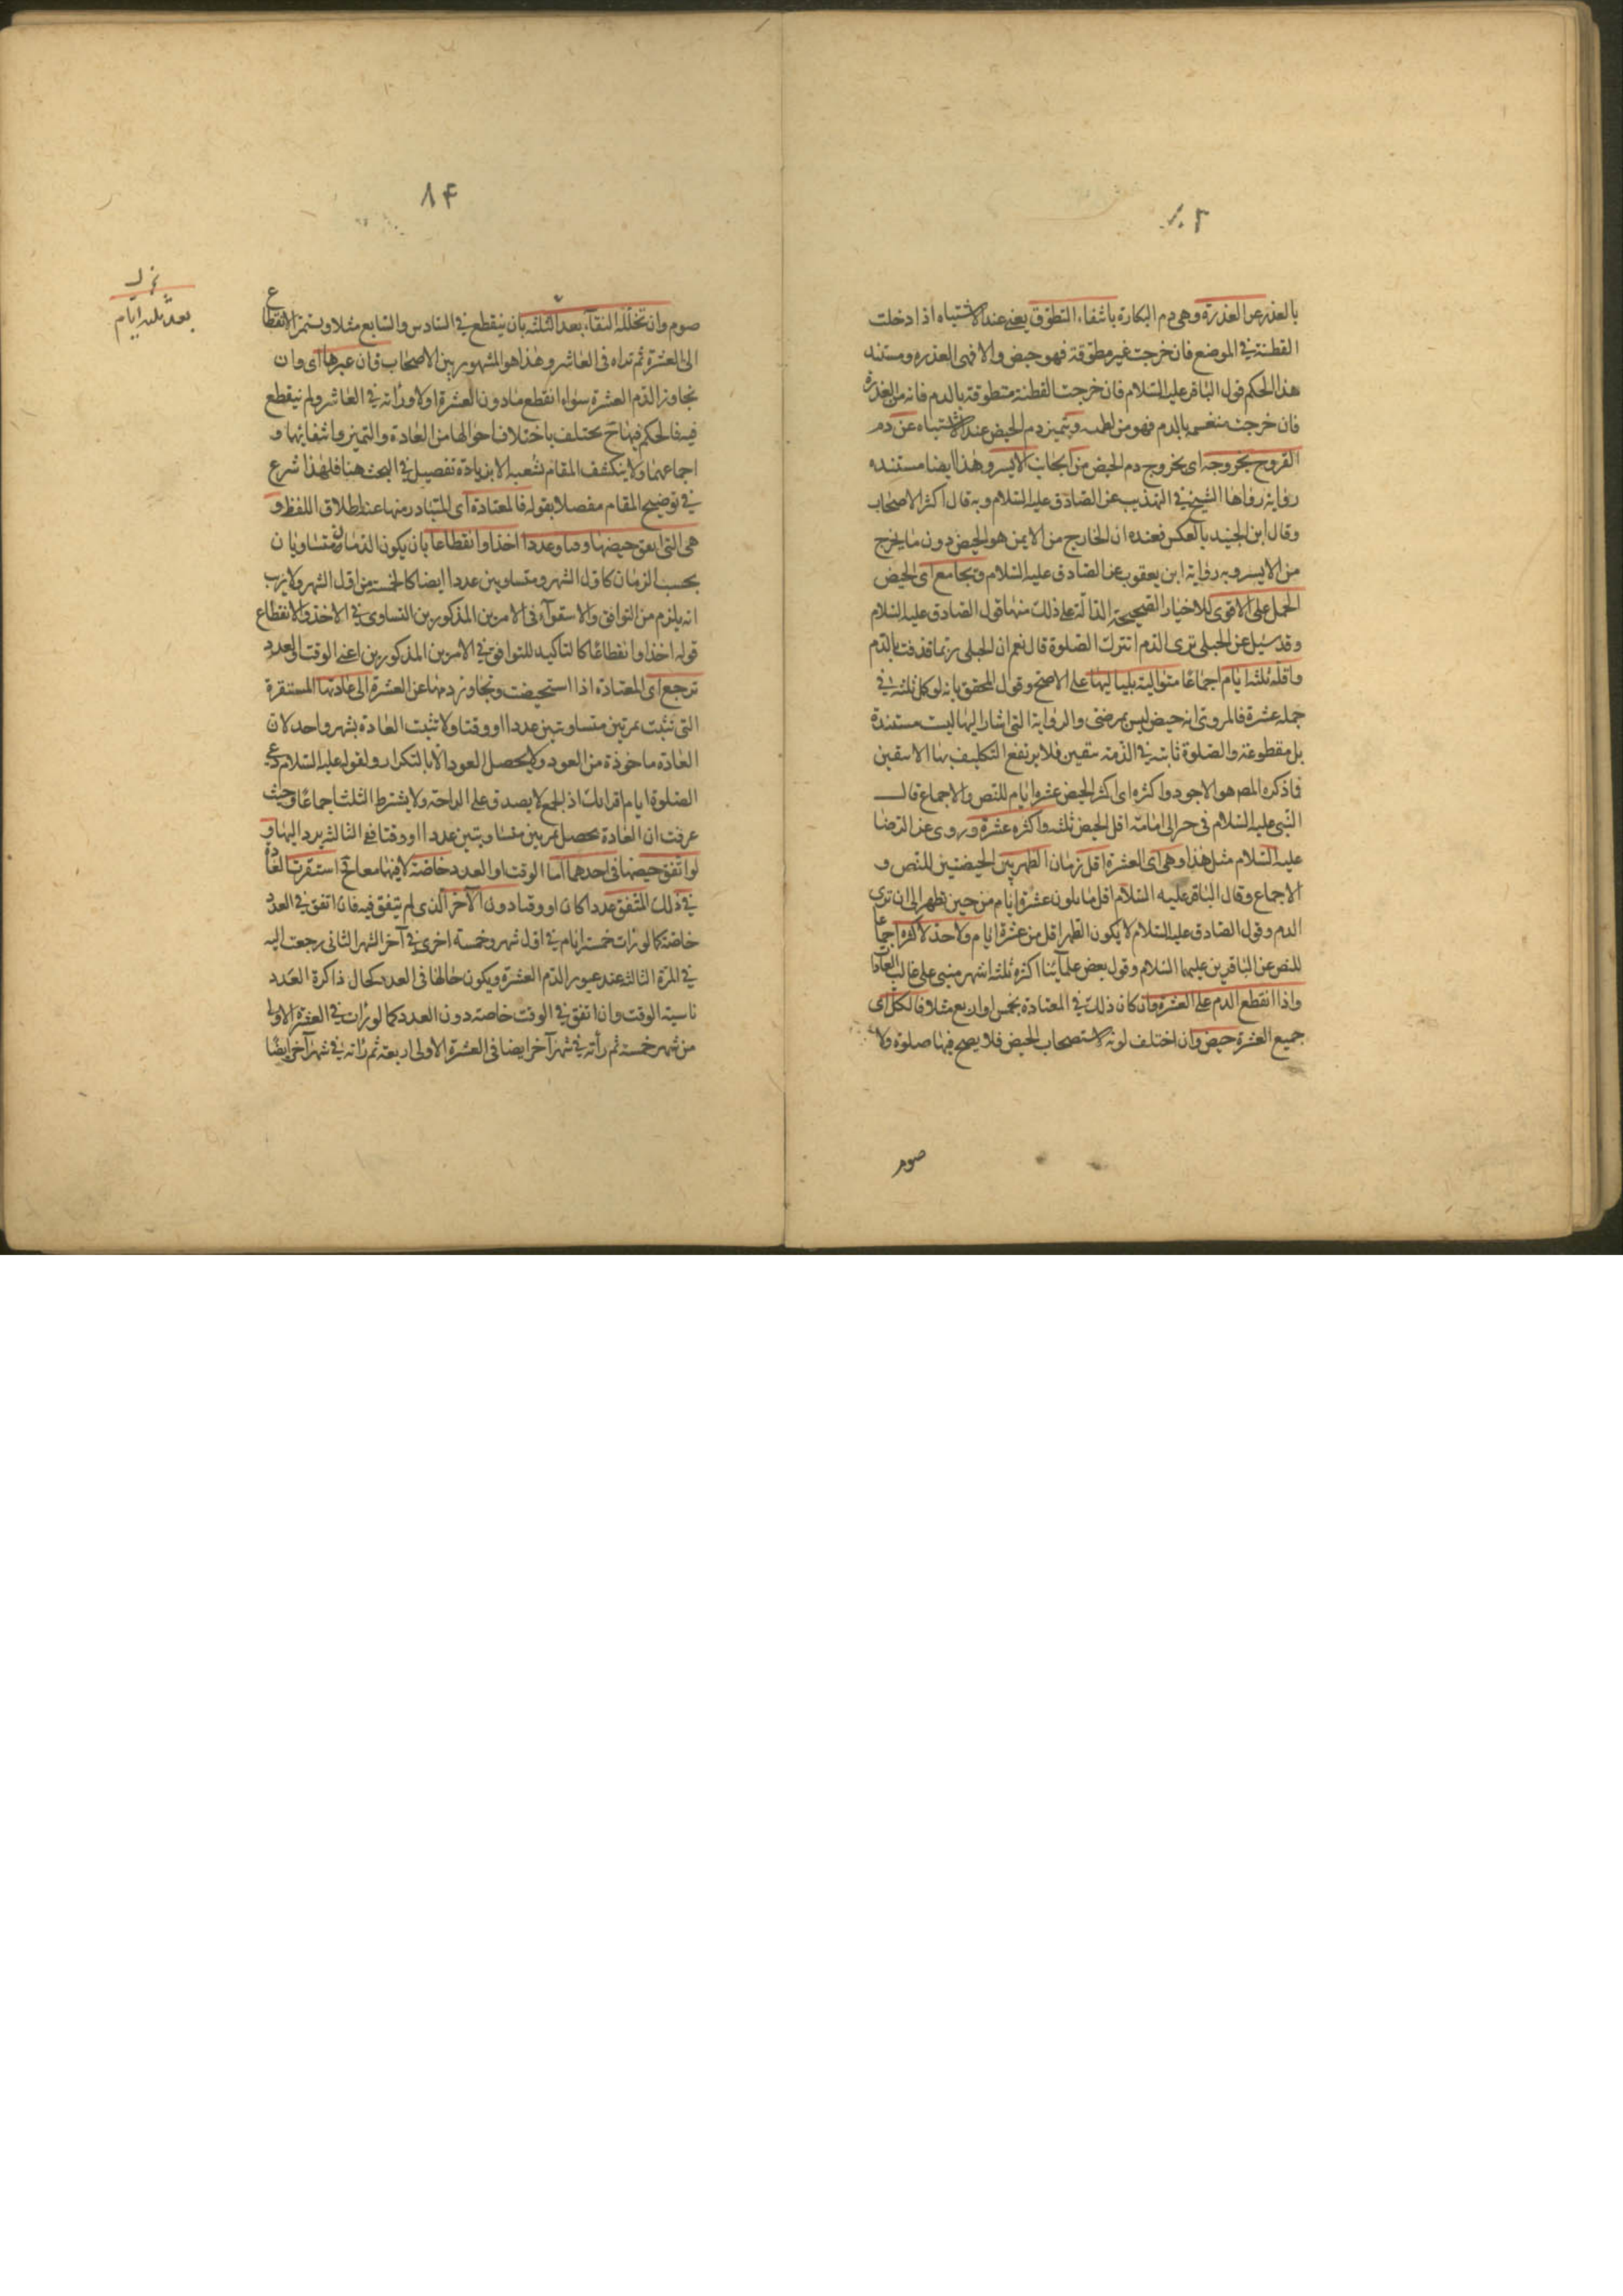 ٨٣
بالعذر عن العذرة وهى دم البكارة بانتفاء التطوق يعنى عند الاشتباه اذا دخلت
القطنة فى الموضع فان خرجت غير مطوقة فهو حيض والا فهى العذره ومستند
هذا الحكم قول الباقر عليه السلام فان خرجت القطنة متطوقة بالدم فانه من العذرة
فان خرجت منغمسه بالدم فهو من الطمث ويتميز دم الحيض عند الاشتباه عن دم
القروح بخروجه اى بخروج دم الحيض من الجانب الايسر وهذا ايضا مستنده
رواية رواها الشيخ فى التهذيب عن الصادق عليه السلام وبه قال اكثر الاصحاب
وقال ابن الجنيد بالعكس فعنده ان الخارج من الايمن هو الحيض دون ما يخرج
من الايسر وبه رواية ابن يعقوب عن الصادق عليه السلام ويجامع اى الحيض
الحمل على الاقوى للاخبار الصحيحة الدالة على ذلك منها قول الصادق عليه السلام
وقد سئل عن الحبلى ترى الدم اتترك الصلوة قال نعم ان الحبلى ربما قذفت بالدم
واقله ثلثه ايام اجماعا متوالية بلياليها على الاصح وقول المحقق بانه لو كمل ثلثه فى
جملة عشرة فالمروى انه حيض ليس بمرضى والرواية التى اشار اليها ليست مستندة
بل مقطوعة والصلوة ثابته فى الذمة بيقين فلا يرتفع التكليف بها الا بيقين
فما ذكره المصـ هو الاجود واكثره اى اكثر الحيض عشرة ايام للنص والاجماع قال
النبى عليه السلام فى خبر ابى امامة اقل الحيض ثلثه واكثره عشرة وروى عن الرضا
عليه السلام مثل هذا وهى اى العشرة اقل زمان الطهر بين الحيضتين للنص و
الاجماع وقال الباقر عليه السلام اقل ما يكون عشرة ايام من حين تطهر الى ان ترى
الدم وقول الصادق عليه السلام لا يكون الطهر اقل من عشرة ايام ولا حد لاكثره اجماعا
للنص عن الباقرين عليهما السلام وقول بعض علمآئنا اكثره ثلثه اشهر مبنى على غالب العادا
واذا انقطع الدم على العشرة وان كان ذلك فى المعتادة بخمس او اربع مثلا فالكل اى
جميع العشرة حيض وان اختلف لونه لاستصحاب الحيض فلا يصح فيها صلوة ولا
صوم
٨۴
صوم وان تخلله النقآء بعد الثلثه بان ينقطع فى السادس والسابع مثلا ويستمر الانقطاع
الى العشرة ثم تراه فى العاشر وهذا هو المشهور بين الاصحاب فان عبرها اى وان
تجاوز الدم العشرة سواء انقطع مادون العشرة اولا وراته فى العاشر ولم ينقطع
فيه فالحكم فيها ح يختلف باختلاف احوالها من العادة والتميز وانتفائهما و
اجماعهما ولا ينكشف المقام بشعبه الا بزيادة تفصيل فى البحث هنا فلهذا شرع
فى توضيح المقام مفصلا بقوله فالمعتادة اى المتبادر منها عند اطلاق اللفظ و
هى التى اتفق حيضها وصا وعددا اخذا وانقطاعا بان يكون الدمان متساويان
بحسب الزمان كاول الشهر ومتساويين عددا ايضا كالخمسة من اول الشهر ولا ريب
انه يلزم من التوافق والاستوآء فى الامرين المذكورين التساوى فى الاخذ والانقطاع
قوله اخذا وانقطاعا كالتاكيد للتوافق فى الامرين المذكورين اعنى الوقت والعدد
ترجع اى المعتادة اذا استحيضت وتجاوز دمها عن العشرة الى عادتها المستقرة
التى تثبت بمرتين متساويتين عددا او وقتا ولا تثبت العادة بشهر واحد لان
العادة ماخوذة من العود ولا يحصل العود الا بالتكرار ولقوله عليه السلام دعى
الصلوة ايام اقرائك اذ الجمع لا يصدق على الواحد ولا يشترط الثلث اجماعا وحيث
عرفت ان العادة تحصل بمرتين متساويتين عددا او وقتا فع الثالث يرد اليها و
لو اتفق حيضها فى احدهما اما الوقت او العدد خاصة لا فيهما معا ح استقرت العادة
فى ذلك المتفق عددا كان او وقتا دون الآخر الذى لم يتفق فيه فان اتفق فى العدد
خاصة كما لو رات خمسة ايام فى اول شهر وخمسة اخرى فى آخر الشهر الثانى رجعت اليه
فى المرة الثالثة عند عبور الدم العشرة ويكون حالها فى العدد كحال ذاكرة العدد
ناسية الوقت وان اتفق فى الوقت خاصة دون العدد كما لو رات فى العشرة الاولى
من شهر خمسة ثم رأته فى شهر آخر ايضا فى العشرة الاولى اربعة ثم رأته فى شهر آخر ايضا
بعد ثلثه ايام